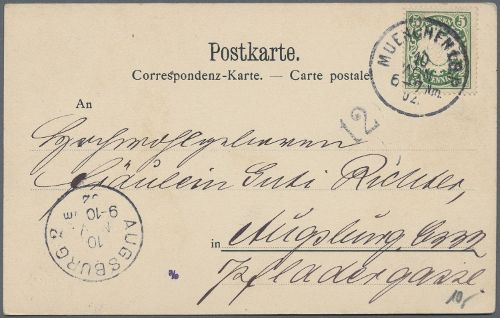 Postkarte.
Correspondenz-Karte. — Carte postale
5 5
PFENNIG
MUENCHEN
10
6-7 Nm.
02.
12
An
Hochwohlgeboren
Fräulein Richter,
in Augsburg
Pfladergasse.
AUGSBURG 2
10
9-10
02
10